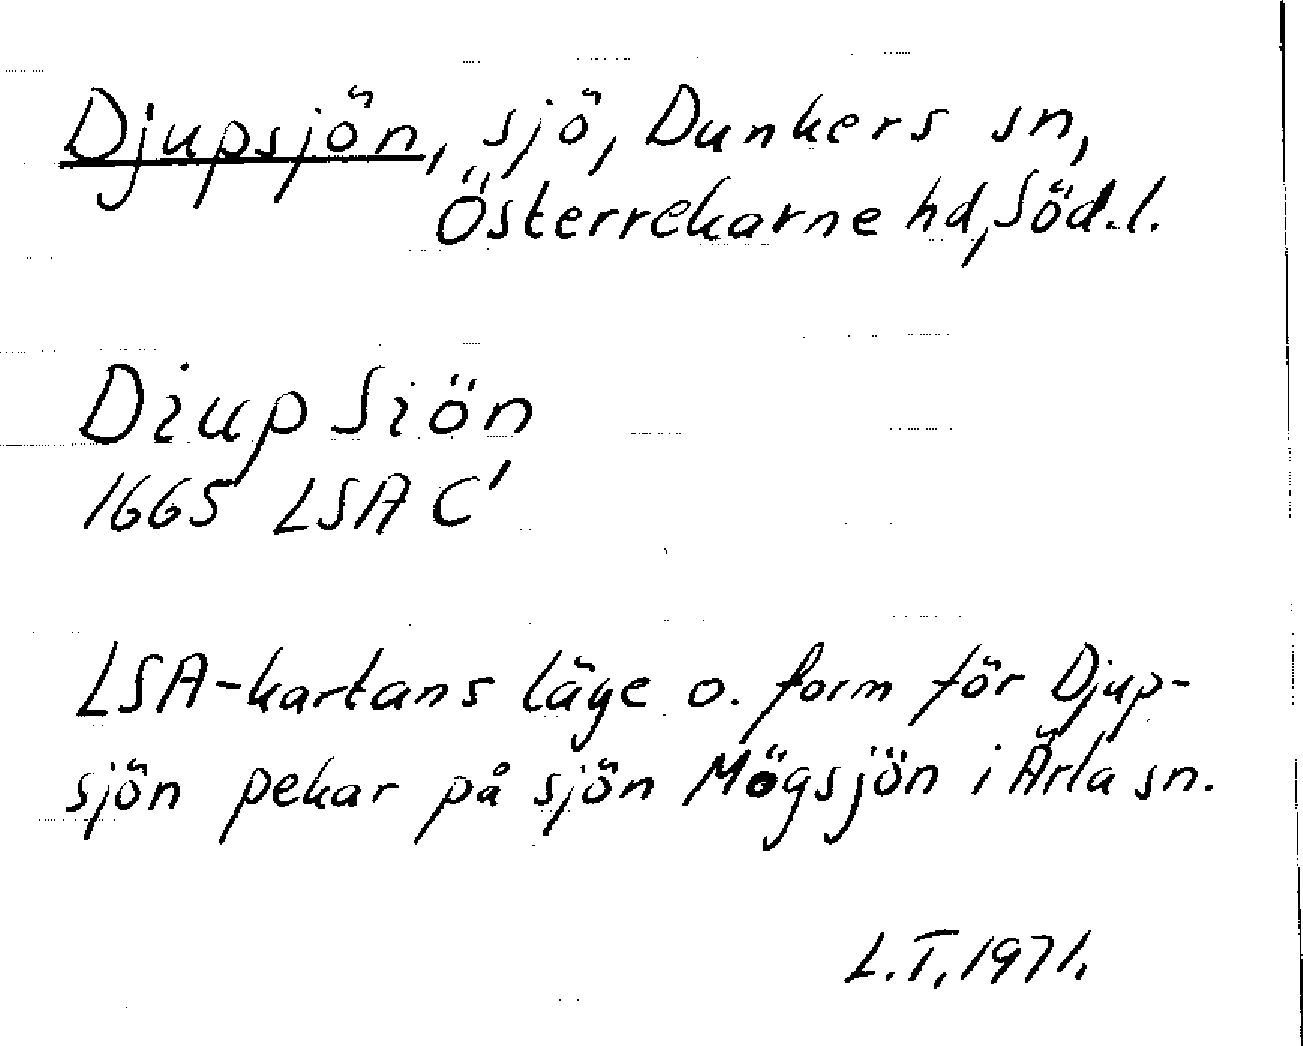 Djupsjön, sjö, Dunkers sn,
Österrekarne hd, Söd.l.
Diup Siön
1665 LSA C'
LSA-kartans läge o. form för Djup-
sjön pekar på sjön Mögsjön i Ärla sn.
L.T, 1971.